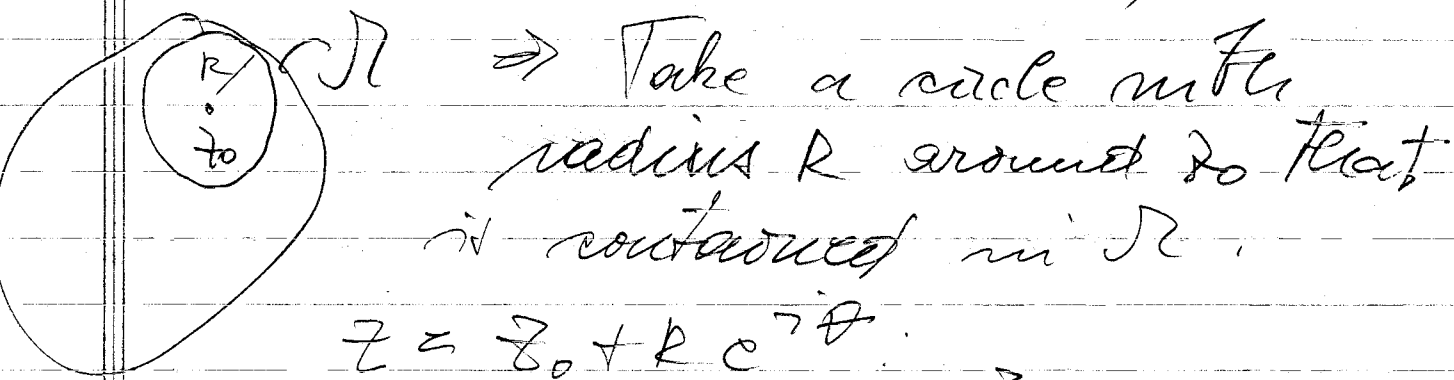 R
z₀
Ω ⇒ Take a circle with
radius R around z₀ that
is contained in Ω.
z = z₀ + R e^{iθ}.